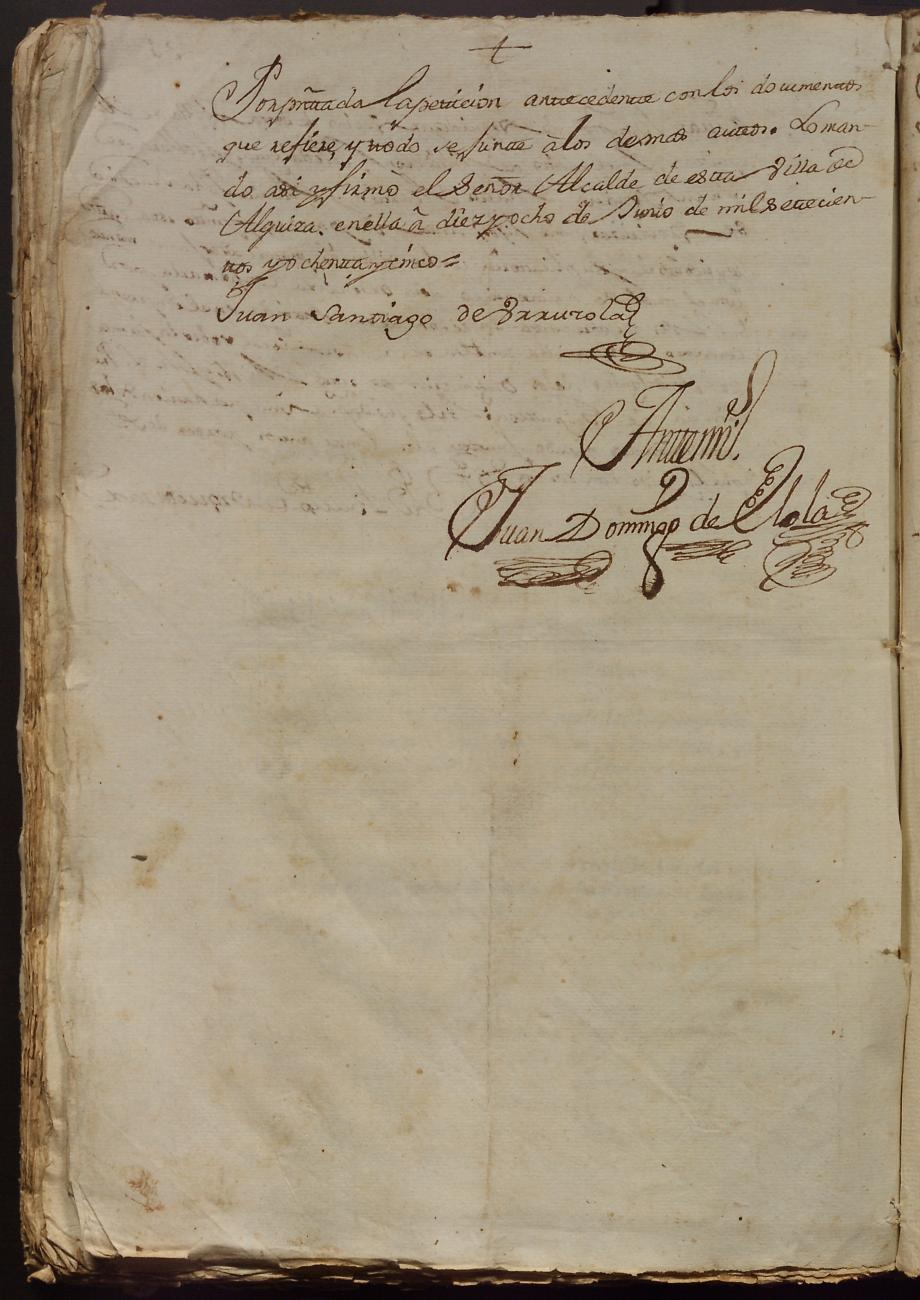 +
Por pñtada la peticion antecedente con los documentos
que refiere, y todo se junte a los demas autos. Lo man-
do asi y firmo el Señor Alcalde de esta Villa de
Alquiza, en ella â diez y ocho de Junio de mil setecien-
tos y ochenta y cinco =
Juan Santiago de Yrrurola
Ante mi.
Juan Domingo de Elola